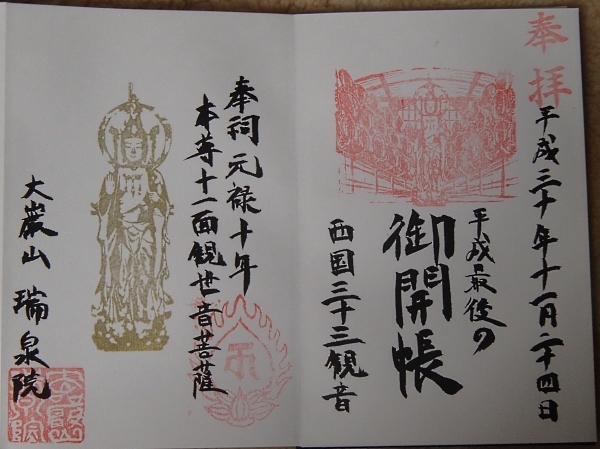 奉拝
平成三十年十一月二十四日
平成最後の
御開帳
西国三十三観音
奉祠元禄十年
本尊十一面観世音菩薩
大巖山 瑞泉院